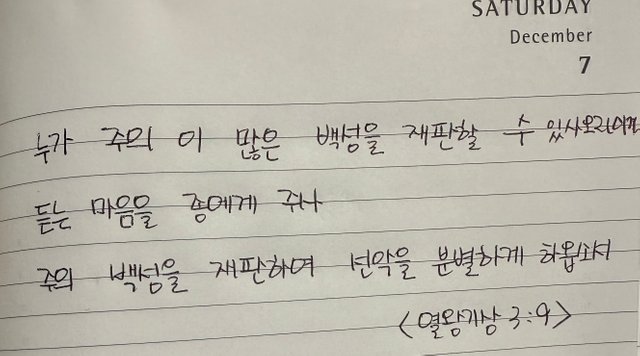 SATURDAY
December
7
누가 주의 이 많은 백성을 재판할 수 있사오리이까
듣는 마음을 종에게 주사
주의 백성을 재판하여 선악을 분별하게 하옵소서
<열왕기상 3:9>